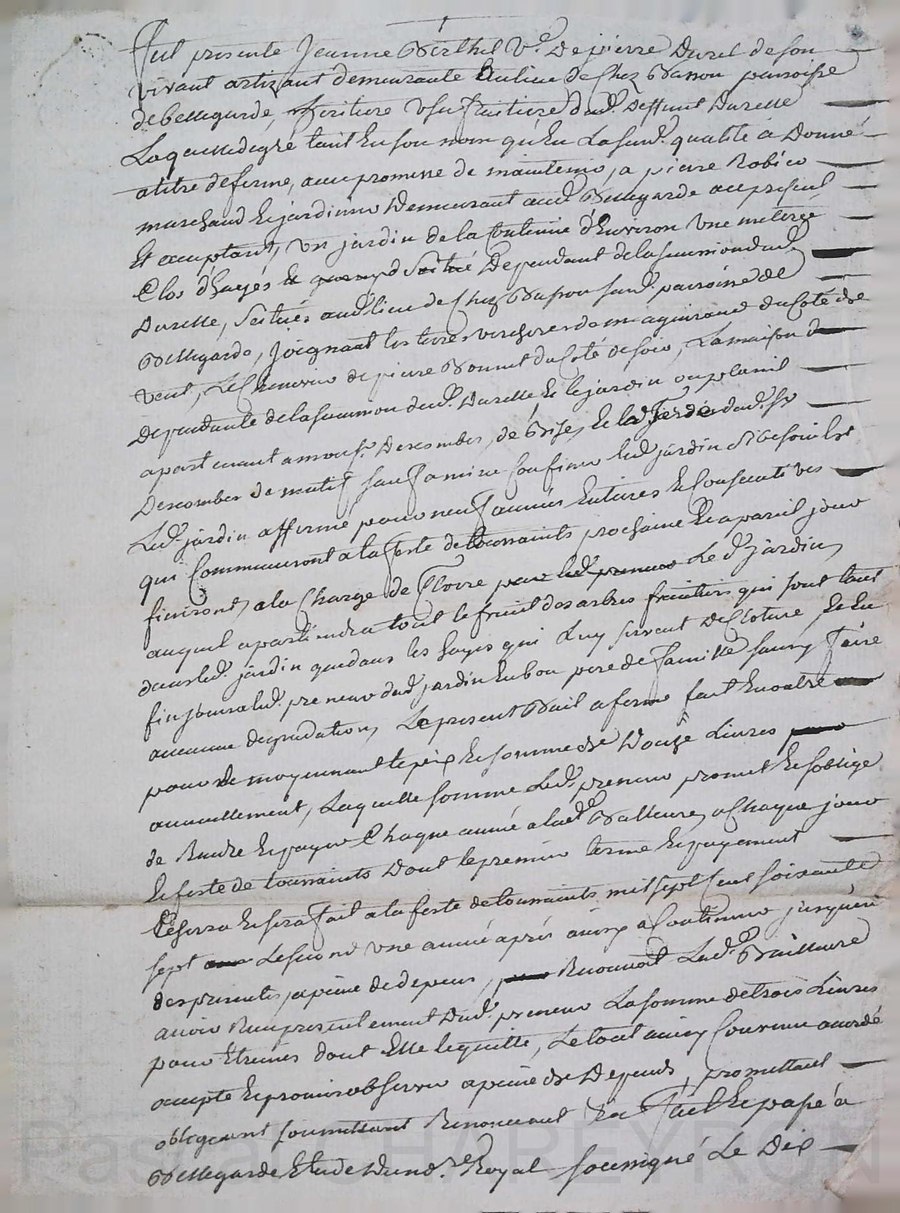 fut presente Jeanne Berthel V.e De pierre Durel de son
vivant artizant demeurante au lieu de Chez Basson parroisse
de bellegarde, heritiere usufruitiere dud. Deffunt Durelle
Laquelle de gré tant En son nom qu'En La sus.d qualité a Donné
a titre de ferme, avec promesse de maintenir, a pierre Robico
marchand Et jardinier Demeurant aud. Bellegarde acy present
Et acceptant, un jardin de la Contenue d'Environ une meterée
Clos d'hayes Situé Dependant de la sucession dud.
Durelle, Scitués aud. lieu de Chez Basson susd. parroisse de
Bellegarde, Joignant les terres vercheres de du Coté de
vent, Le Chemin de pierre Bonnet du Coté de soir, La maison
Dependante de la sucession dud. Durelle Et le jardin
apartenant a mons.r Descomber, de Bize, Et le jardin dud. s.r
Descomber de matin sauf a mieux Confiner led. jardin Si besoin Est
Led. jardin affermé pour neuf années Entieres Et Consecutives
qui Commenceront a la feste de toussaints prochaine Et a pareil jour
finiront, a la Charge de Cloire Le d. jardin,
auquel apartiendra tout le fruit des arbres fruitiers qui sont tant
dans led. jardin que dans les hayes qui Luy servent De Cloture, Et En
jouira led. preneur dud. jardin En bon pere de famille sans y faire
aucune degradation, Le present Bail a ferme fait En outre
pour Et moyennant le prix Et somme de Douze Livres
annuellement, Laquelle somme Led. preneur promet Et s'oblige
de Rendre Et payer Chaque année a lad. Bailleure, a Chaque jour
Et feste de toussaints Dont le premier terme Et payement
Echerra Et sera fait a la feste de toussaints mil sept Cent soixante
sept Le second une année après ainsy a Continuer jusqu'en
des presentes, a peine de depens, Reconnoit Lad. Bailleure
avoir Reçu presentement Dud. preneur La somme de trois Livres
pour Etrenes dont Elle le quitte, Le tout ainsy Convenu accordé
accepté Et promis observer a peine de Depends, promettant
obligeant soumettant Renonceant &a Fait Et passé à
Bellegarde Etude Du no.re Royal soussigné Le Dix
Pascal CHAREYRON